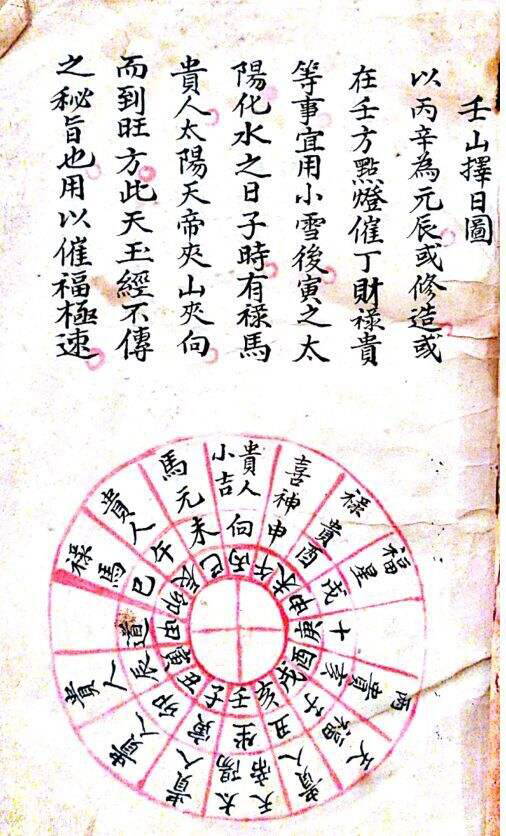 壬山擇日圖
以丙辛為元辰或修造或
在壬方點燈催丁財祿貴
等事宜用小雪後寅之太
陽化水之日子時有祿馬
貴人太陽天帝夾山夾向
而到旺方此天玉經不傳
之秘旨也用以催福極速
貴人小吉向丙
喜神申午
祿貴酉未
福星戌申
十庚
丙貴亥酉
天福子戌
貴人丑亥
太陽天帝坐壬
貴人寅子
貴人卯丑
貴人辰寅
道甲
祿馬巳卯
貴人午辰
馬元未巳